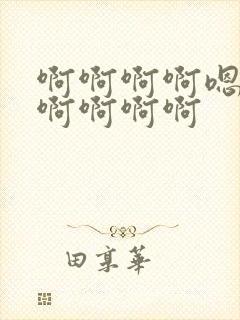 啊啊啊啊嗯
啊啊啊啊
田享华